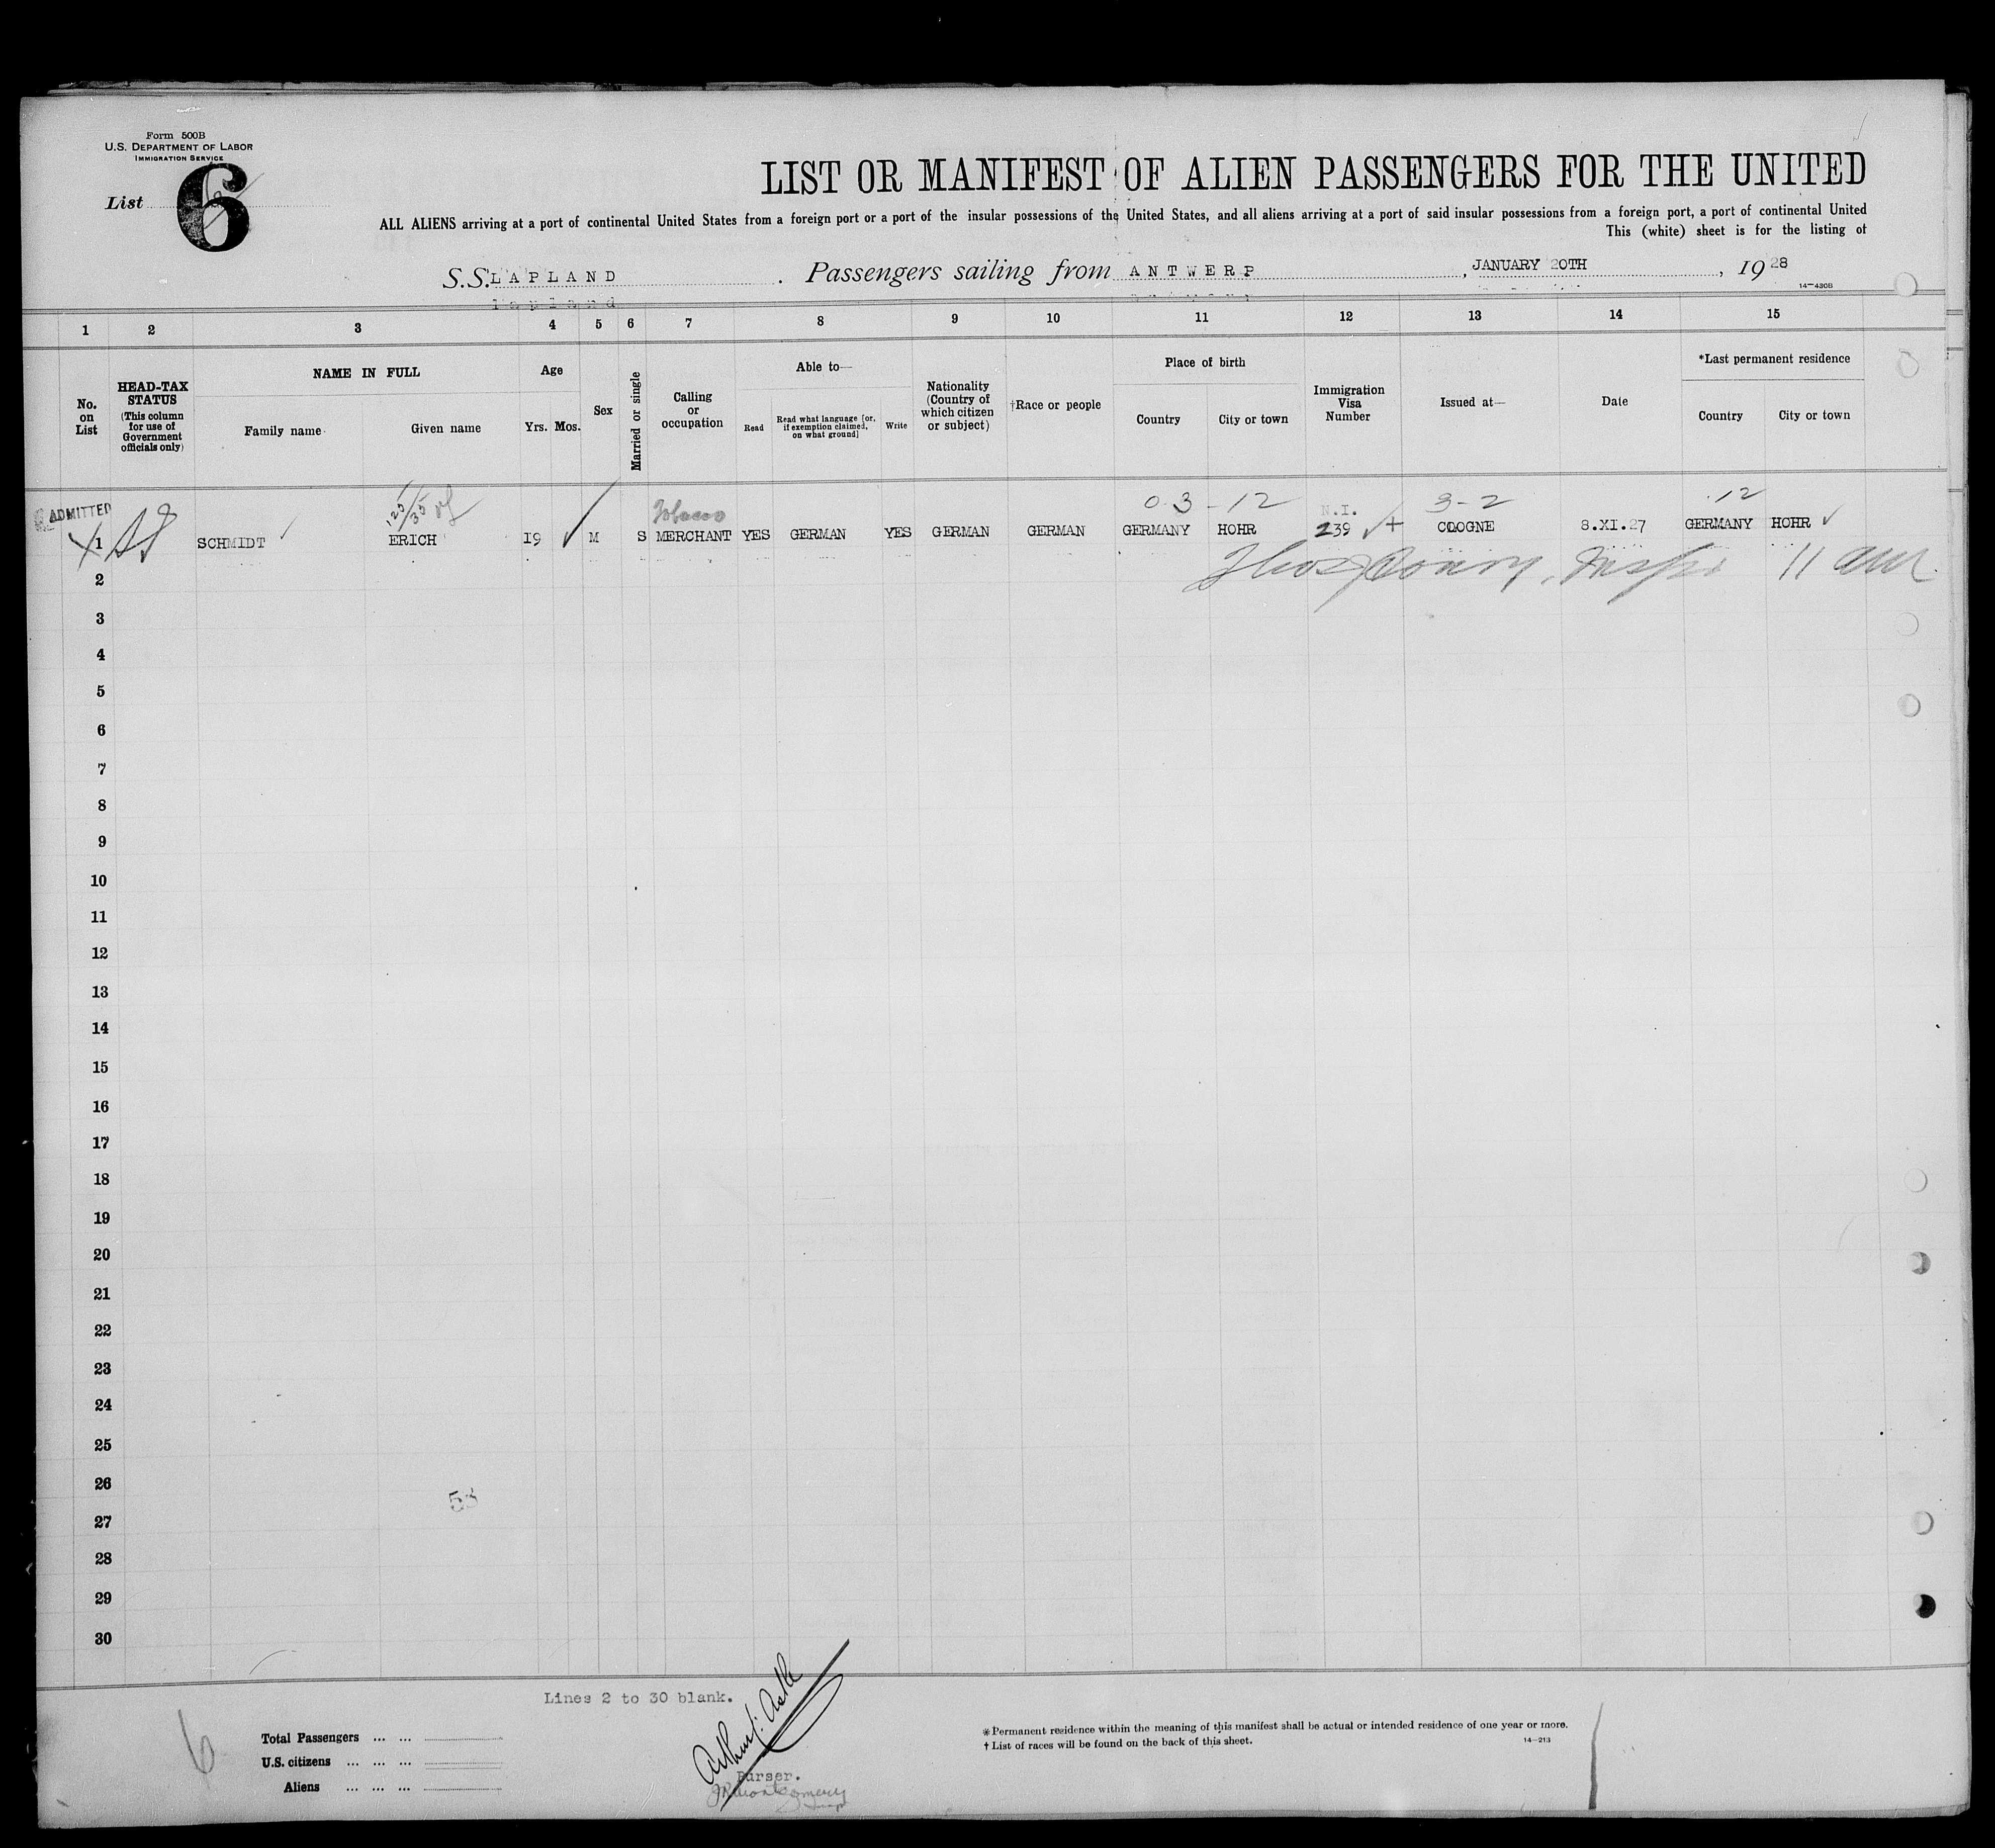 Form 500B
U.S. DEPARTMENT OF LABOR
IMMIGRATION SERVICE
List 6
LIST OR MANIFEST OF ALIEN PASSENGERS FOR THE UNITED
ALL ALIENS arriving at a port of continental United States from a foreign port or a port of the insular possessions of the United States, and all aliens arriving at a port of said insular possessions from a foreign port, a port of continental United
This (white) sheet is for the listing of
S.S. LAPLAND . Passengers sailing from ANTWERP , JANUARY 20TH , 1928
14—430B
1 2 3 4 5 6 7 8 9 10 11 12 13 14 15
No. on List
HEAD-TAX STATUS (This column for use of Government officials only)
NAME IN FULL
Family name Given name
Age
Yrs. Mos.
Sex
Married or single
Calling or occupation
Able to—
Read
Read what language [or, if exemption claimed, on what ground]
Write
Nationality (Country of which citizen or subject)
†Race or people
Place of birth
Country City or town
Immigration Visa Number
Issued at—
Date
*Last permanent residence
Country City or town
ADMITTED
125/35 Tobacco 0 3 - 12 N.I. 3-2 12
1 SCHMIDT ERICH 19 M S MERCHANT YES GERMAN YES GERMAN GERMAN GERMANY HOHR 239 COLOGNE 8.XI.27 GERMANY HOHR
2 11 am
3
4
5
6
7
8
9
10
11
12
13
14
15
16
17
18
19
20
21
22
23
24
25
26
53
27
28
29
30
Lines 2 to 30 blank.
6
Total Passengers ... ...
U.S. citizens ... ... ...
Aliens ... ... ...
Purser.
JR Montgomery
* Permanent residence within the meaning of this manifest shall be actual or intended residence of one year or more.
† List of races will be found on the back of this sheet.
14—213